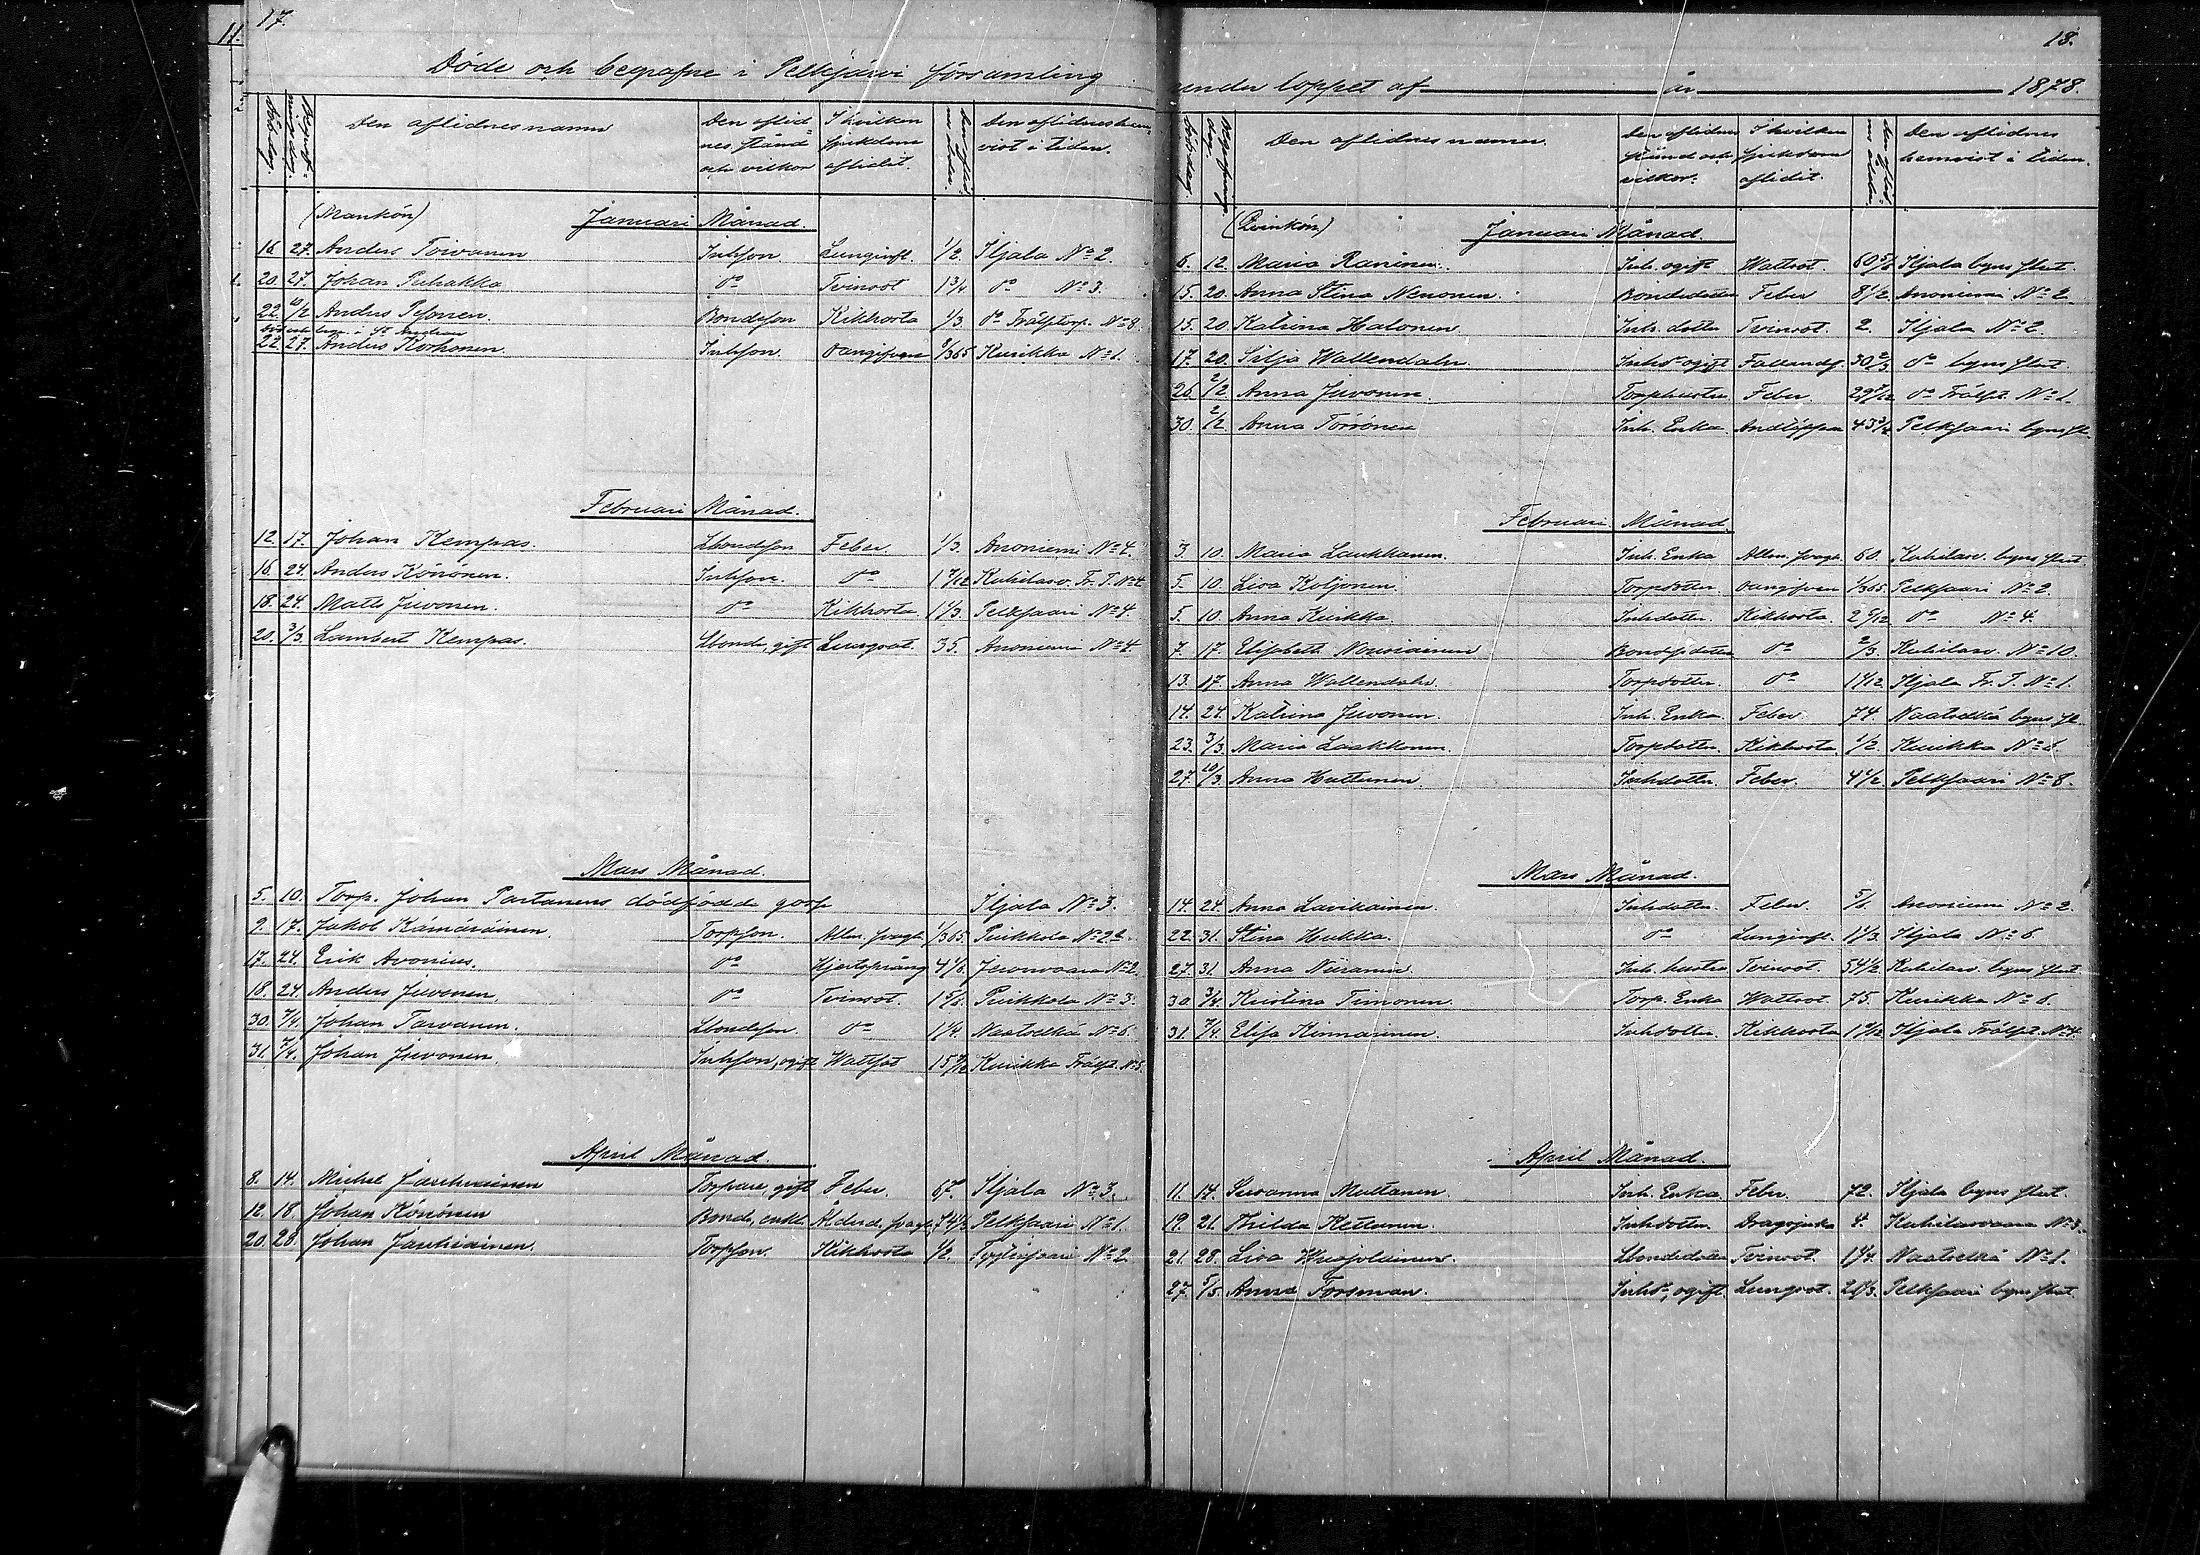 11.
17.
Döde och begrafne i Pelkjärvi församling
Dödsdag.
Begrafningsdag.
Den aflidnes namn
Den aflidnes stånd och vilkor
I hvilken sjukdom aflidit.
Den aflidnes hemvist i tiden.
(Mankön) Januari Månad.
16. 27. Anders Toivanen Inhson. Lunginfl. 1/2 Iljala No 2.
20. 27. Johan Puhakka do Tvinsot 1 3/4 do No 3.
22. 10/2 Anders Pesonen. Bondeson Kikhosta 1/3. do Frälsetorp. No 8.
22. 27. Anders Korhonen. Inhson. oangifven /365 Kurikka No 1.
Februari Månad.
12. 17. Johan Kempas. Lbondeson Feber 1/3. Anoniemi No 4.
16. 24. Anders Könönen. Inhson. do 1 /12 Kuhilasv. Fr. T. No 4
18. 24. Matts Juvonen. do Kikhosta 1 1/3. Pelksaari No 4.
20. 3/3. Lambert Kempas. Lbonde, gift Lungsot. 35. Anoniemi No 4.
Mars Månad.
5. 10. Torp. Johan Partanens dödfödde gosse Iljala No 3.
9. 17. Jakob Kämäräinen. Torpson. Allm. svagh. 1/365. Puikkola No 2.
17. 24. Erik Avonius. do Hjertsprång 4 1/6. No 2.
18. 24. Anders Juvonen. do Tvinsot. 1 5/6. Puikkola No 3.
30. 7/4. Johan Tarvanen. Lbondeson. do 1 1/4. Naatselkä No 6.
31. 7/4. Johan Juvonen. Inhson, ogift Wattsot 15 /12 Kurikka Frälset. No 5.
April Månad.
8. 14. Michel Jauhiainen Torpare, gift Feber. 67 Iljala No 3.
12. 18. Johan Könönen Bonde, enkl. Ålderd. svagh. 74 1/2 Pelksaari No 1.
20. 28. Johan Jauhiainen. Torpson. Kikhosta 1/2. No 2.
18.
under loppet af år 1878.
Dödsdag.
Begrafningsdag.
Den aflidnes namn.
Den aflidnes stånd och vilkor.
I hvilken sjukdom aflidit.
Den aflidnes hemvist i tiden.
(Qvinkön) Januari Månad.
6. 12. Maria Raninen. Inh. ogift Wattsot. 60 5/6 Iljala byns flut.
15. 20. Anna Stina Nenonen. Bondedotter Feber 8 1/2 Anoniemi No 2.
15. 20 Katrina Halonen. Inh. dotter Tvinsot. 2. Iljala No 2.
17. 20. Silja Wallendahr Inhs ogift Fallandes. 30 2/3 do byns flut.
26. 2/2 Anna Juvonen. Torphustru Feber. 29 /12 do Frälset. No 1.
30. 2/2 Anna Törrönen Inh. Enka Andtäppa 43 Pelksaari byns fl.
Februari Månad
3. 10. Maria Laukkanen. Inh. Enka Allm. svagh. 60. Kuhilasv. byns flut
5. 10. Lisa Koljonen. Torpdotter oangifven 1/365 Pelksaari No 2.
5. 10. Anna Kurkka. Inhdotter. Kikhosta 2 5/12 do No 4.
7. 17. Elisabeth Nousiainen Bondedotter do 2/3. Kuhilasv. No 10.
13. 17. Anna Wallendahr. Torpdotter. do 1 1/12 Iljala Fr. T. No 1.
14. 24. Katrina Juvonen. Inh. Enka Feber 74. Naatselkä byns fl.
23. 3/3. Maria Laakkonen. Torpdotter. Kikhosta 1/2. Kurikka No 1.
27. 10/3. Anna Huttunen. Inhdotter. Feber. 4 1/2 Pelksaari No 8.
Mars Månad.
14. 24. Anna Lavikainen. Inhdotter. Feber. 5/6. Anoniemi No 2.
22. 31. Stina Hukka. do Lunginfl. 1 1/3. Iljala No 6.
27. 31. Anna Niiranen. Inh. hustru Tvinsot. 54 1/2 Kuhilasv. byns flut
30. 7/4. Kristina Timonen. Torp. Enka Wattsot. 75. Kurikka No 6.
31. 7/4. Elisa Kinnarinen. Inhdotter. Kikhosta 1 /12 Iljala Frälset. No 4.
April Månad.
11. 14. Susanna Mattanen. Inh. Enka Feber 72. Iljala byns flut.
19. 21. Thilda Kettunen. Inhdotter. Dragsjuka 4. Kuhilasvaara No 3.
21. 28. Lisa Lbondedotter Tvinsot. 1 1/4. Naatselkä No 1.
27. 5/5. Anna Forsman. Inhs, ogift. Lungsot. 21 1/3. Pelksaari byns flut.